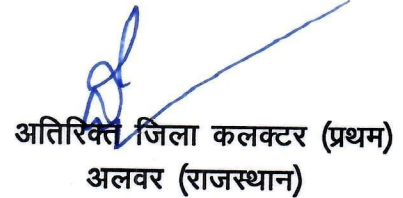 अतिरिक्त जिला कलक्टर (प्रथम)
अलवर (राजस्थान)